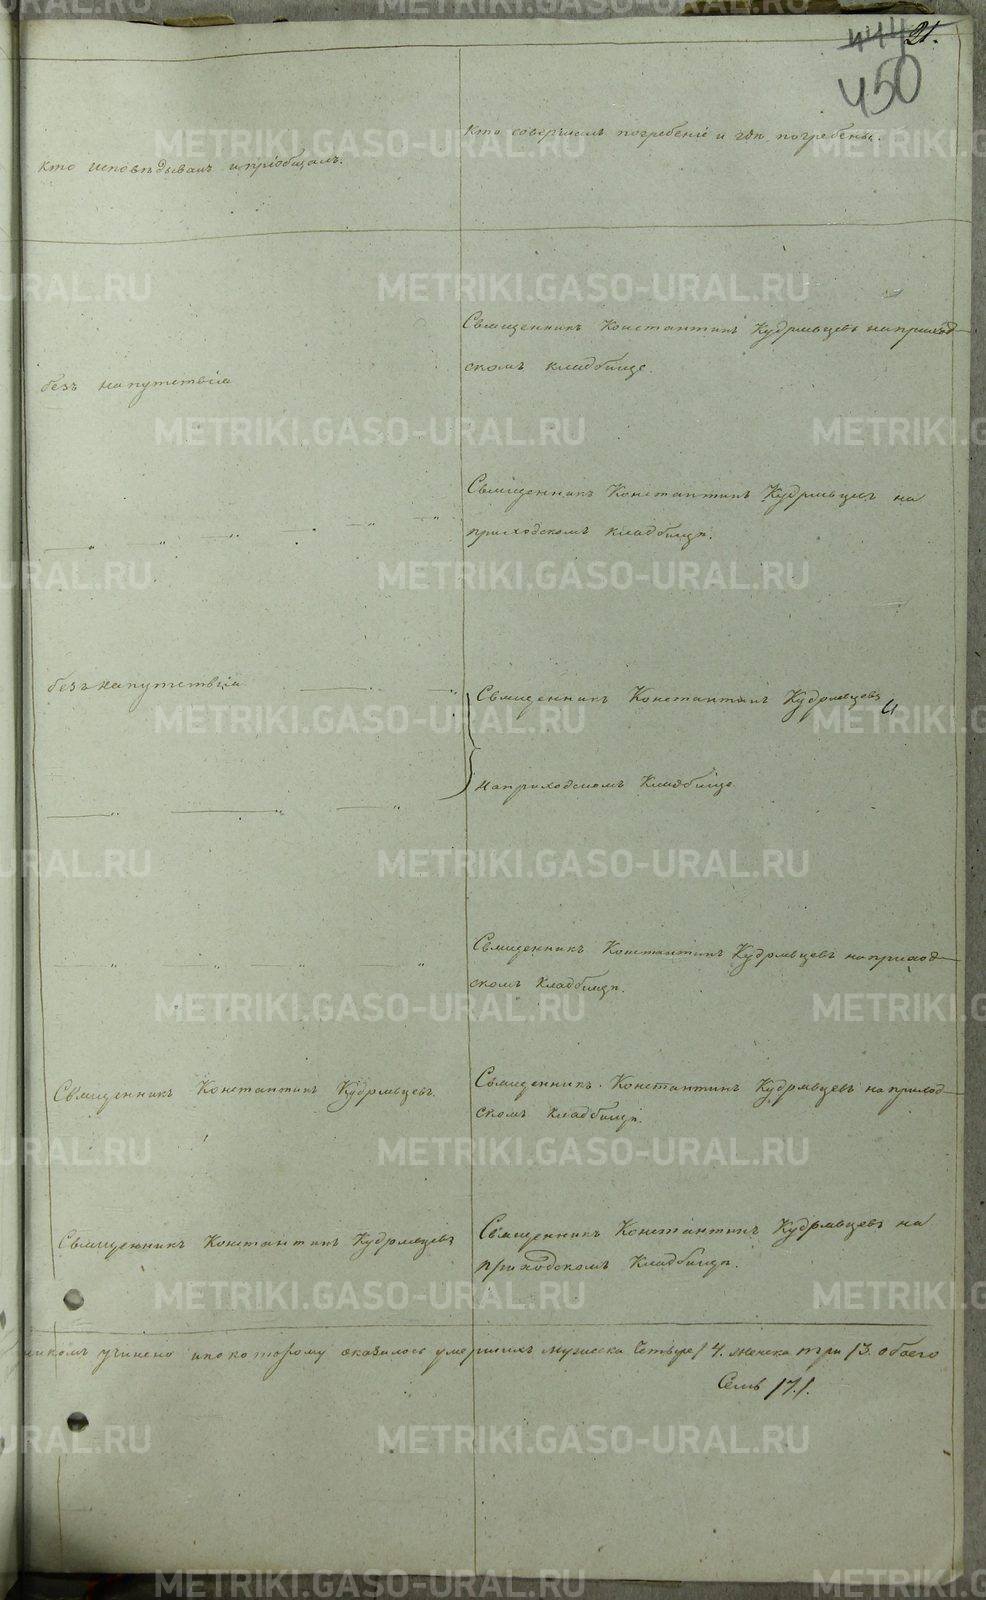 21.
450
кто исповѣдывалъ и пріобщалъ.
Кто совершалъ погребеніе и гдѣ погребены.
Священникъ Константинъ Кудрявцевъ на приход-
скомъ кладбище.
безъ напутствія
Священникъ Константинъ Кудрявцевъ на
приходскомъ кладбищѣ.
безъ напутствія
Священникъ Константинъ Кудрявцевъ
на приходскомъ Кладбище
Священникъ Константинъ Кудрявцевъ на приход-
скомъ Кладбищѣ.
Священникъ Константинъ Кудрявцевъ
Священникъ Константинъ Кудрявцевъ на приход-
скомъ Кладбищѣ.
Священникъ Константинъ Кудрявцевъ
Священникъ Константинъ Кудрявцевъ на
приходскомъ Кладбищѣ.
учинено и по которому оказалось умершихъ мужеска Четыре /4. женска три /3. обоего
Семь /7./
METRIKI.GASO-URAL.RU